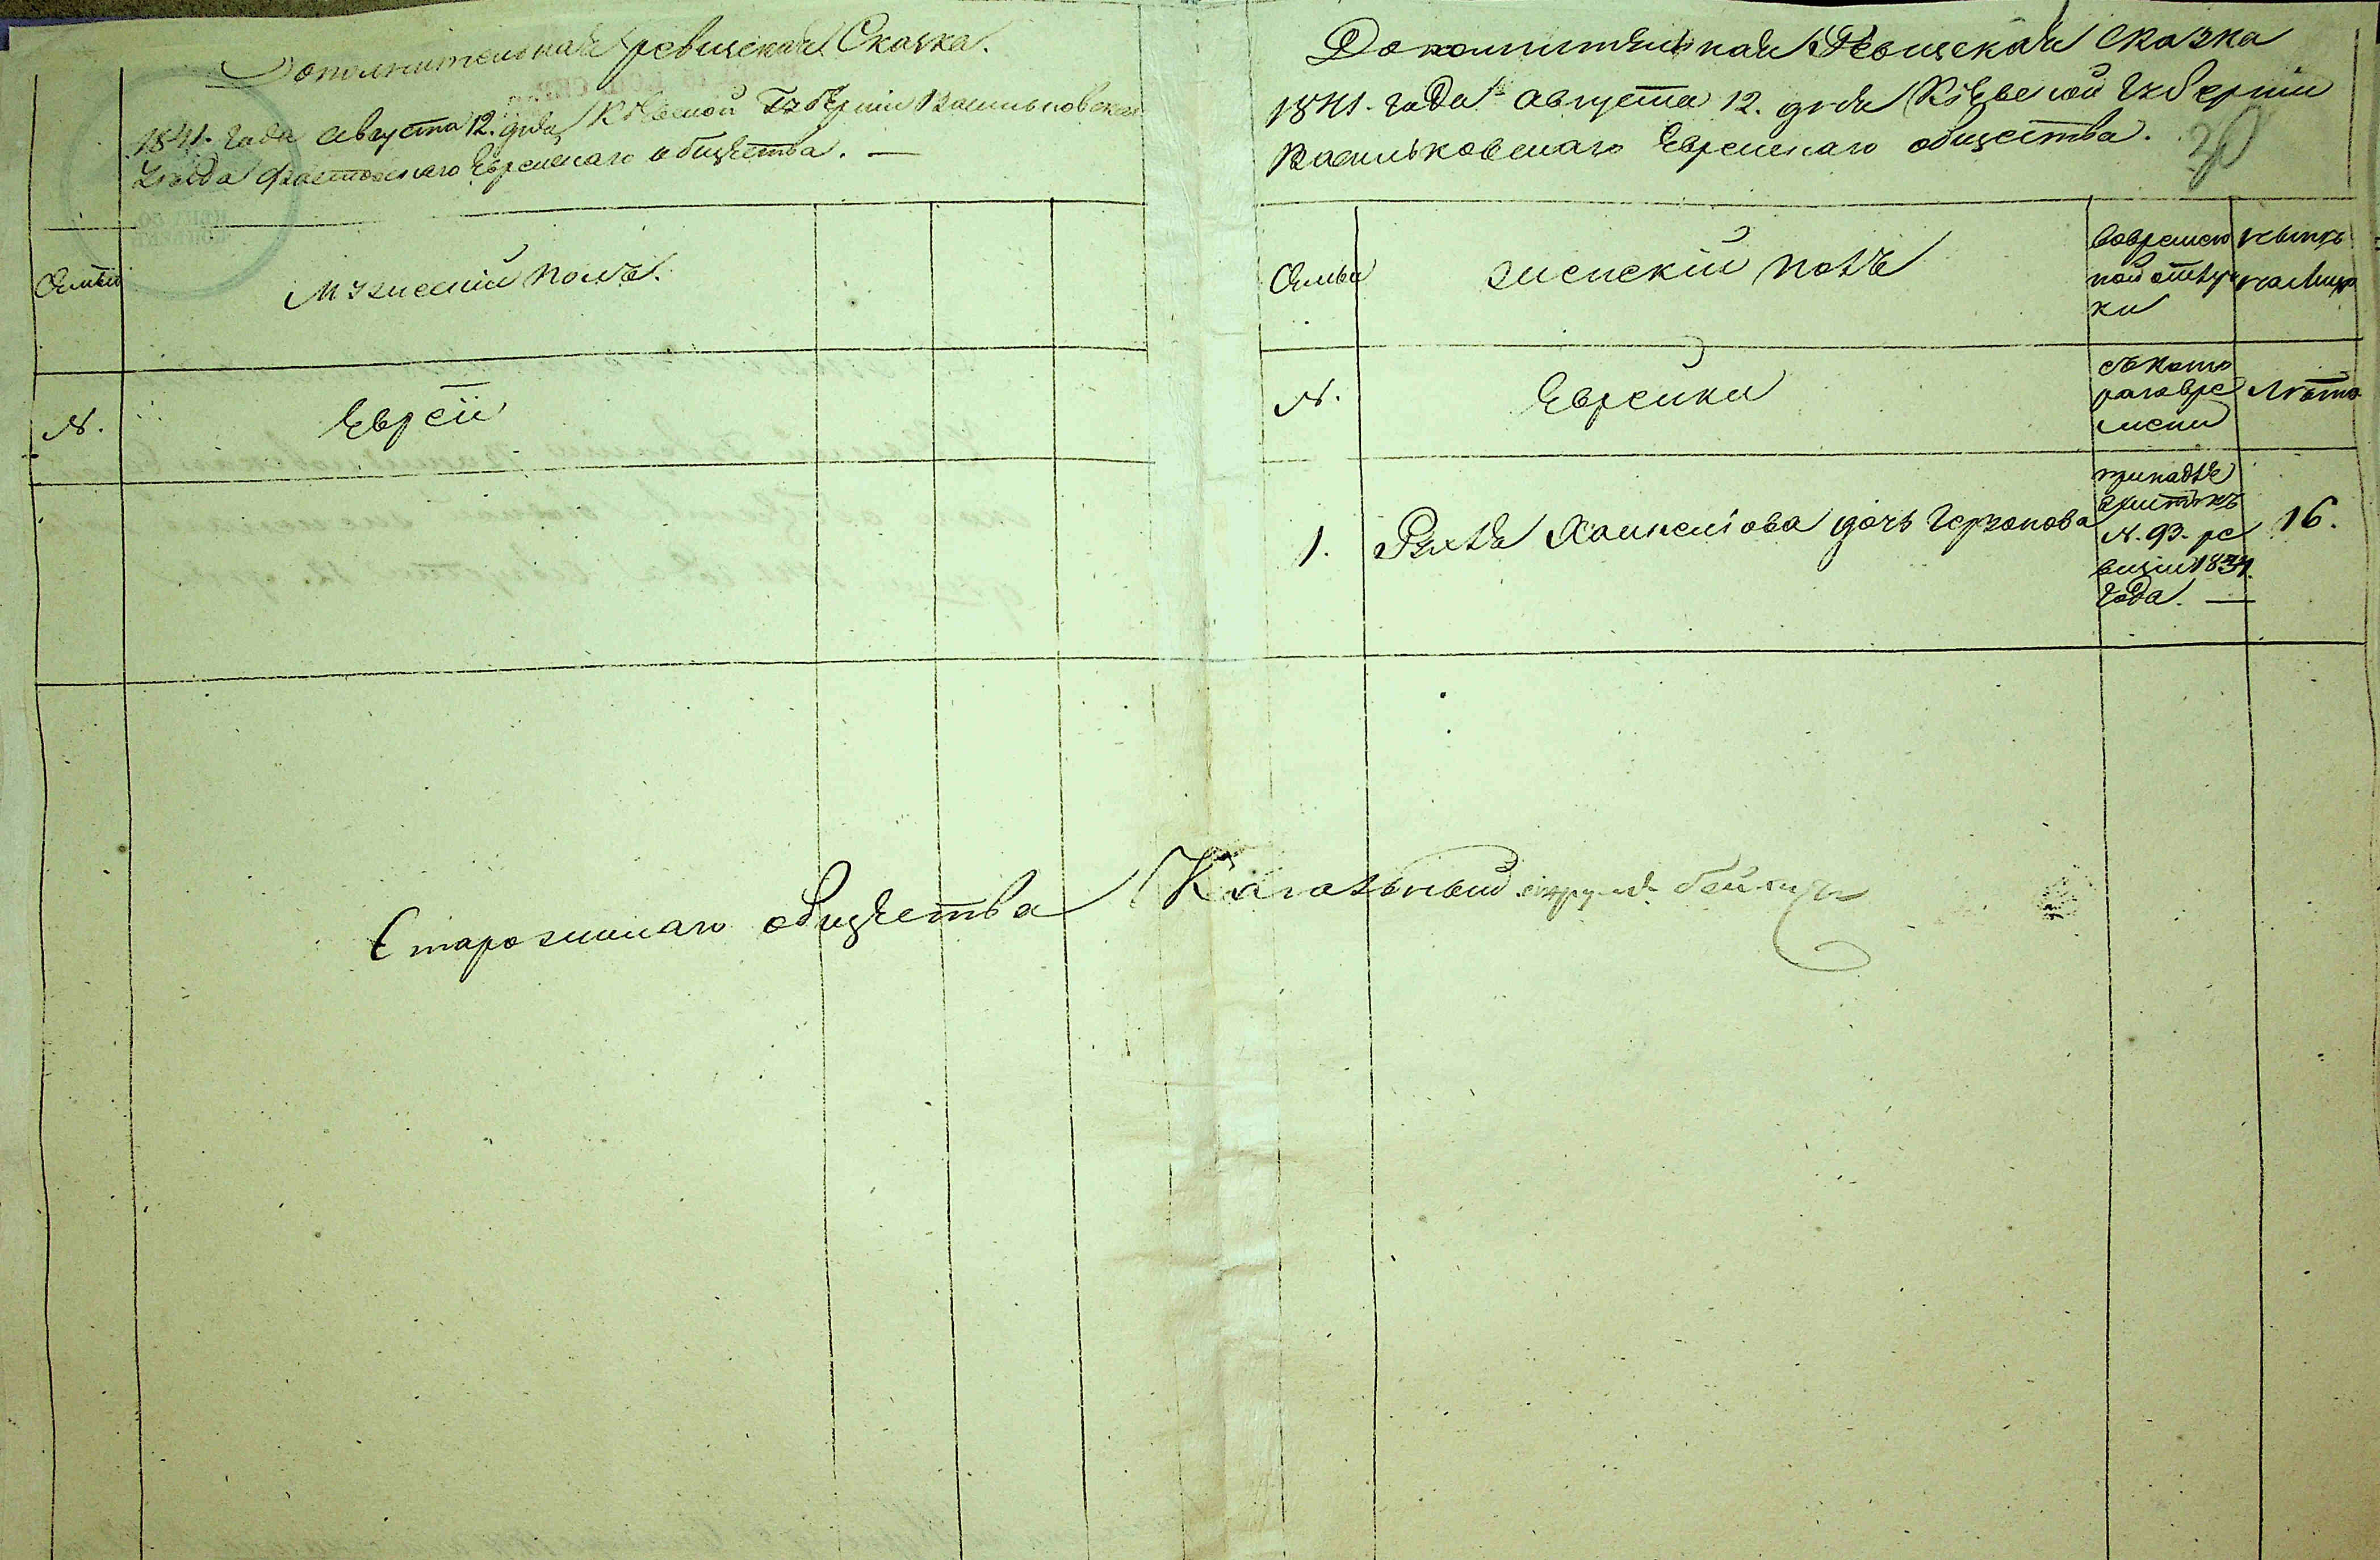 Дополнительная ревизская Сказка.
1841. года августа 12. дня Кіевской Губерніи Васильковскаго
Уезда Фастовского Еврейскаго общества. —
Семьи
Мужескій полъ.
N.
Евреи
Дополнительная Ревизская сказка
1841. года августа 12. дня Кіевской Губерніи
Васильковскаго Еврейскаго общества.
30
Семьи
женскій полъ
вовремен
ной отлуч
ки
ныне
налицо
N.
Еврейки
съ кото
раго вре
мени
Лѣта
1.
Рухля Хаимсиова дочь Герзонова
принадле
житъ къ
N. 93. ре
визіи 1834.
года. —
16.
общества Кагальный